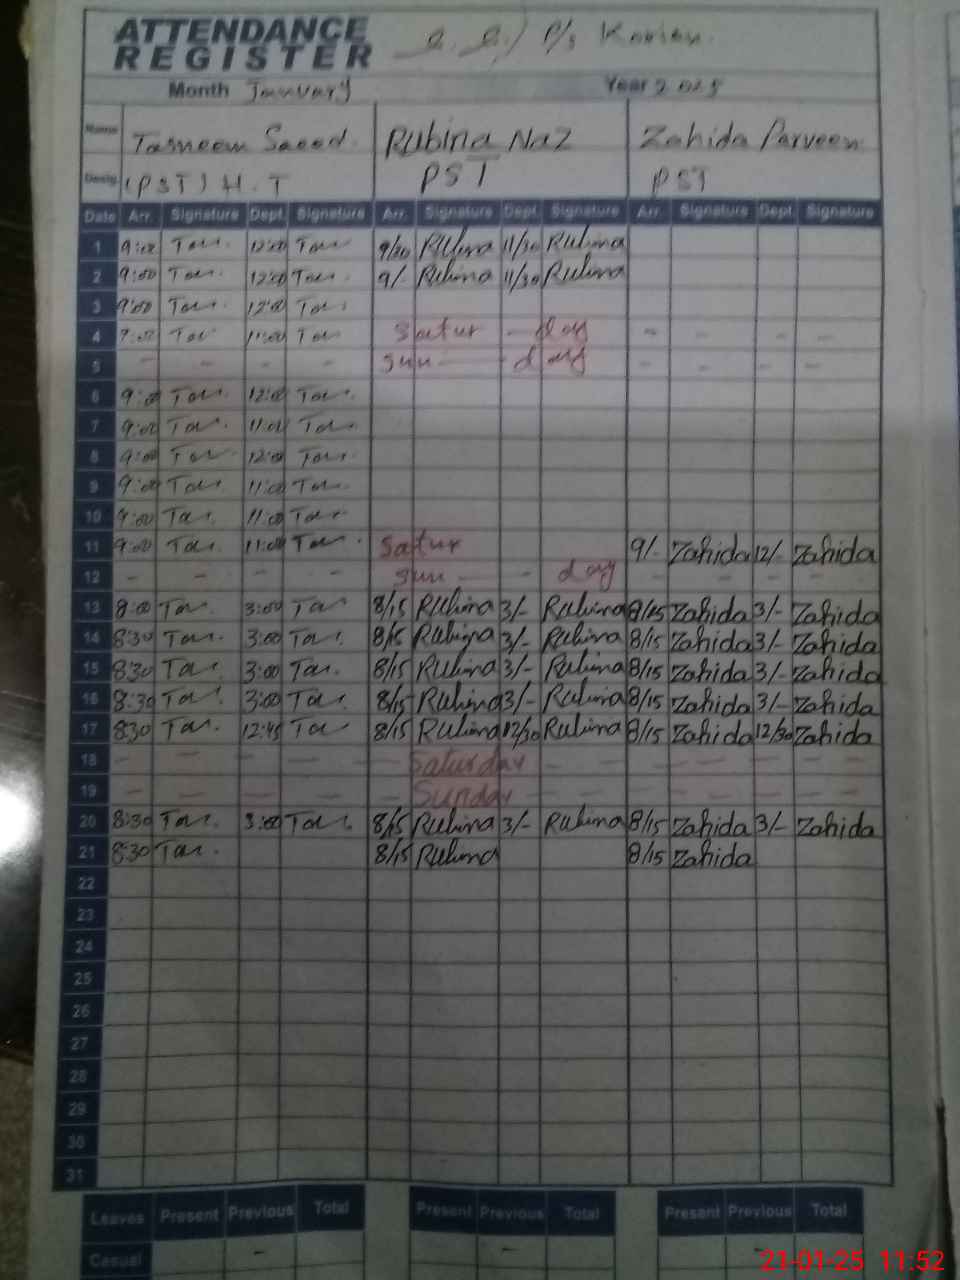 ATTENDANCE
REGISTER
P/s
Month January Year 2025
Name Tasneem Saeed. Rubina Naz Zahida Parveen
Desig. (PST) H.T PST PST
Date Arr. Signature Dept. Signature Arr. Signature Dept. Signature Arr. Signature Dept. Signature
1 9:00 Tas. 12:00 Tas 9/30 Rubina 11/30 Rubina
2 9:00 Tas. 12:00 Tas. 9/- Rubina 11/30 Rubina
3 9:00 Tas. 12:00 Tas.
4 Tas 11:00 Tas Satur - day - - - -
5 - - - - Sun - day - - - -
6 9:00 Tas. 12:00 Tas.
7 9:00 Tas. 11:00 Tas.
8 9:00 Tas. 12:00 Tas.
9 9:00 Tas. 11:00 Tas.
10 9:00 Tas. 11:00 Tas.
11 9:00 Tas. 11:00 Tas. Satur 9/- Zahida 12/- Zahida
12 - - - - Sun - - day - - - -
13 8:00 Tas. 3:00 Tas 8/15 Rubina 3/- Rubina 8/15 Zahida 3/- Zahida
14 8:30 Tas. 3:00 Tas. 8/15 Rubina 3/- Rubina 8/15 Zahida 3/- Zahida
15 830 Tas. 3:00 Tas. 8/15 Rubina 3/- Rubina 8/15 Zahida 3/- Zahida
16 8:30 Tas. 3:00 Tas. 8/15 Rubina 3/- Rubina 8/15 Zahida 3/- Zahida
17 830 Tas. 12:45 Tas 8/15 Rubina 12/30 Rubina 8/15 Zahida 12/30 Zahida
18 - - - - - Saturday - - - - - -
19 - - - - - Sunday - - - - - -
20 8:30 Tas. 3:00 Tas. 8/15 Rubina 3/- Rubina 8/15 Zahida 3/- Zahida
21 8:30 Tas. 8/15 Rubina 8/15 Zahida
22
23
24
25
26
27
28
29
30
31
Leaves Present Previous Total Present Previous Total Present Previous Total
Casual - - -
21-01-25 11:52